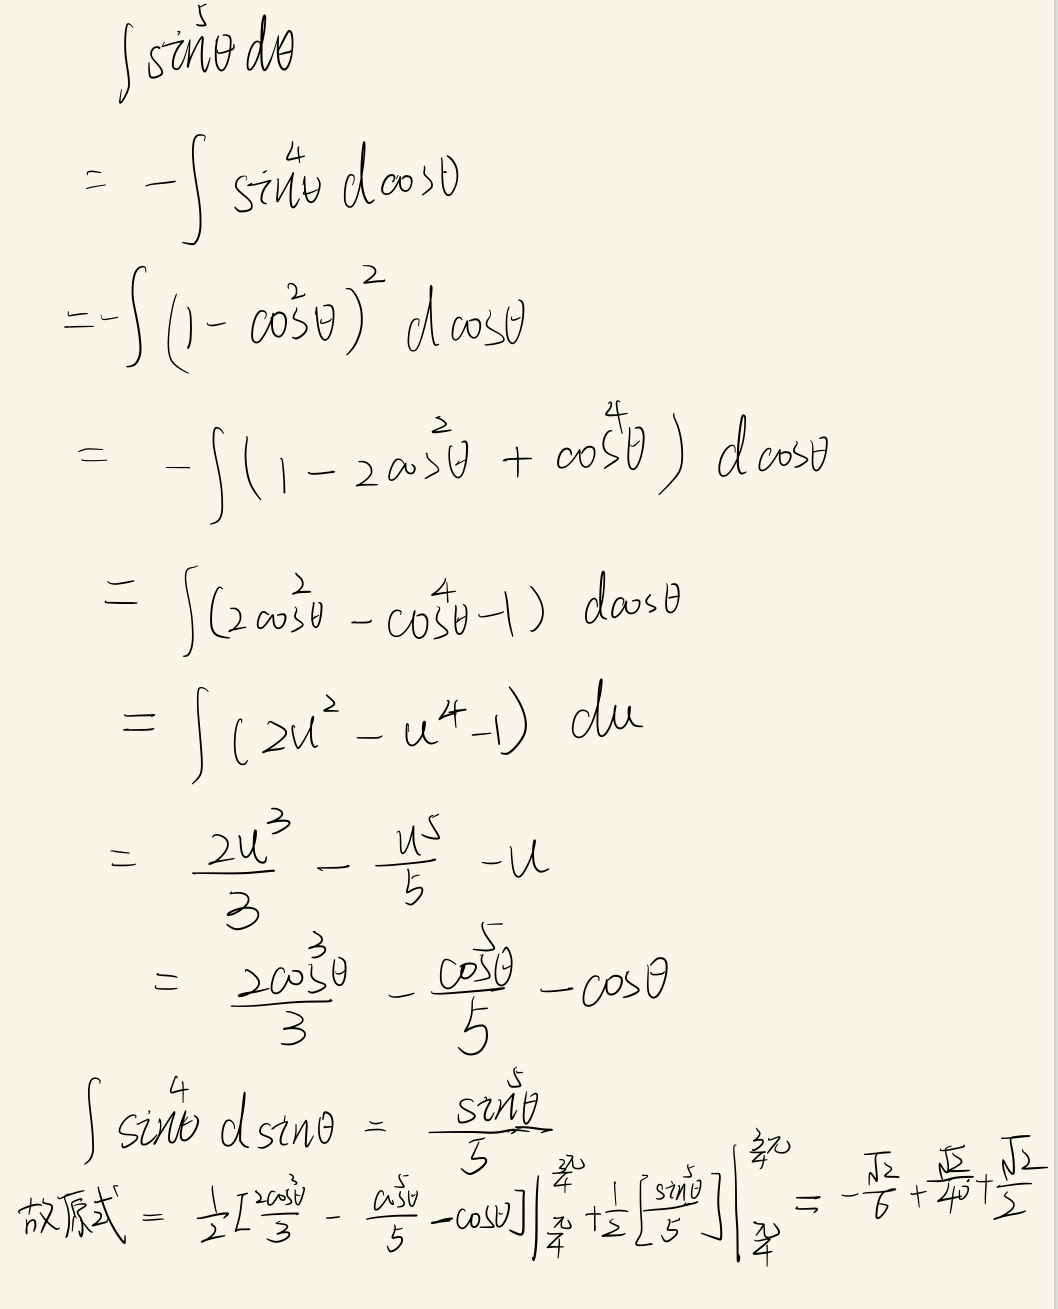 ∫ sin⁵θ dθ
= -∫ sin⁴θ dcosθ
= -∫ (1 - cos²θ)² dcosθ
= -∫ (1 - 2cos²θ + cos⁴θ) dcosθ
= ∫ (2cos²θ - cos⁴θ - 1) dcosθ
= ∫ (2u² - u⁴ - 1) du
= 2u³/3 - u⁵/5 - u
= 2cos³θ/3 - cos⁵θ/5 - cosθ
∫ sin⁴θ dsinθ = sin⁵θ/5
故原式 = 1/2 [2cos³θ/3 - cos⁵θ/5 - cosθ] |_{π/4}^{3/4 π} + 1/2 [sin⁵θ/5] |_{π/4}^{3/4 π} = -√2/6 + √2/40 + √2/2